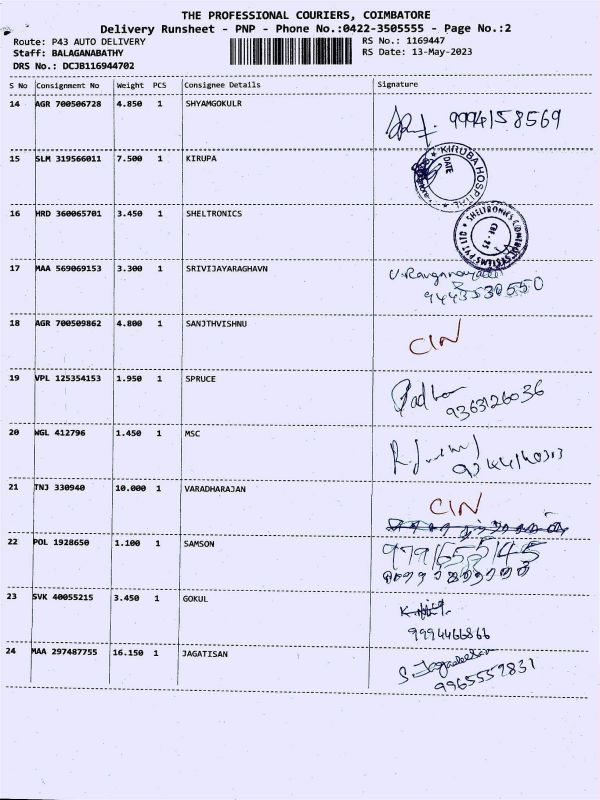 THE PROFESSIONAL COURIERS, COIMBATORE
Delivery Runsheet - PNP - Phone No.:0422-3505555 - Page No.:2
Route: P43 AUTO DELIVERY RS No.: 1169447
Staff: BALAGANABATHY RS Date: 13-May-2023
DRS No.: DCJB116944702
S No Consignment No Weight PCS Consignee Details Signature
14 AGR 700506728 4.850 1 SHYAMGOKULR
9994158569
15 SLM 319566011 7.500 1 KIRUPA
KIRUBA HOSPITAL
DATE
16 HRD 360065701 3.450 1 SHELTRONICS
17 MAA 569069153 3.300 1 SRIVIJAYARAGHAVN
9443530550
18 AGR 700509862 4.800 1 SANJTHVISHNU
CIN
19 VPL 125354153 1.950 1 SPRUCE
9363126036
20 WGL 412796 1.450 1 MSC
21 TNJ 330940 10.000 1 VARADHARAJAN
CIN
22 POL 1928650 1.100 1 SAMSON
9791655145
23 SVK 40055215 3.450 1 GOKUL
9994466866
24 MAA 297487755 16.150 1 JAGATISAN
S Jagadeesan
9965552831